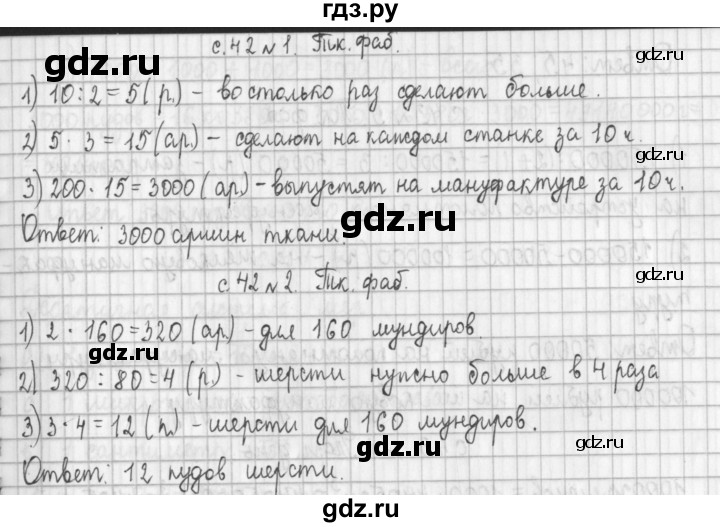 гдз.ру
с.42 №1. Тк. фаб.
1) 10:2=5(р.) – во столько раз сделают больше.
2) 5·3=15(ар.) – сделают на каждом станке за 10ч.
3) 200·15=3000(ар.) – выпустят на мануфактуре за 10ч.
Ответ: 3000 аршин ткани.
с.42 №2. Тк. фаб.
1) 2·160=320(ар.) – для 160 мундиров.
2) 320:80=4(р.) – шерсти нужно больше в 4 раза
3) 3·4=12(п.) – шерсти для 160 мундиров.
Ответ: 12 пудов шерсти.
gdz.ru
gdz.ru
gdz.ru
gdz.ru
gdz.ru
gdz.ru
gdz.ru
gdz.ru
gdz.ru
gdz.ru